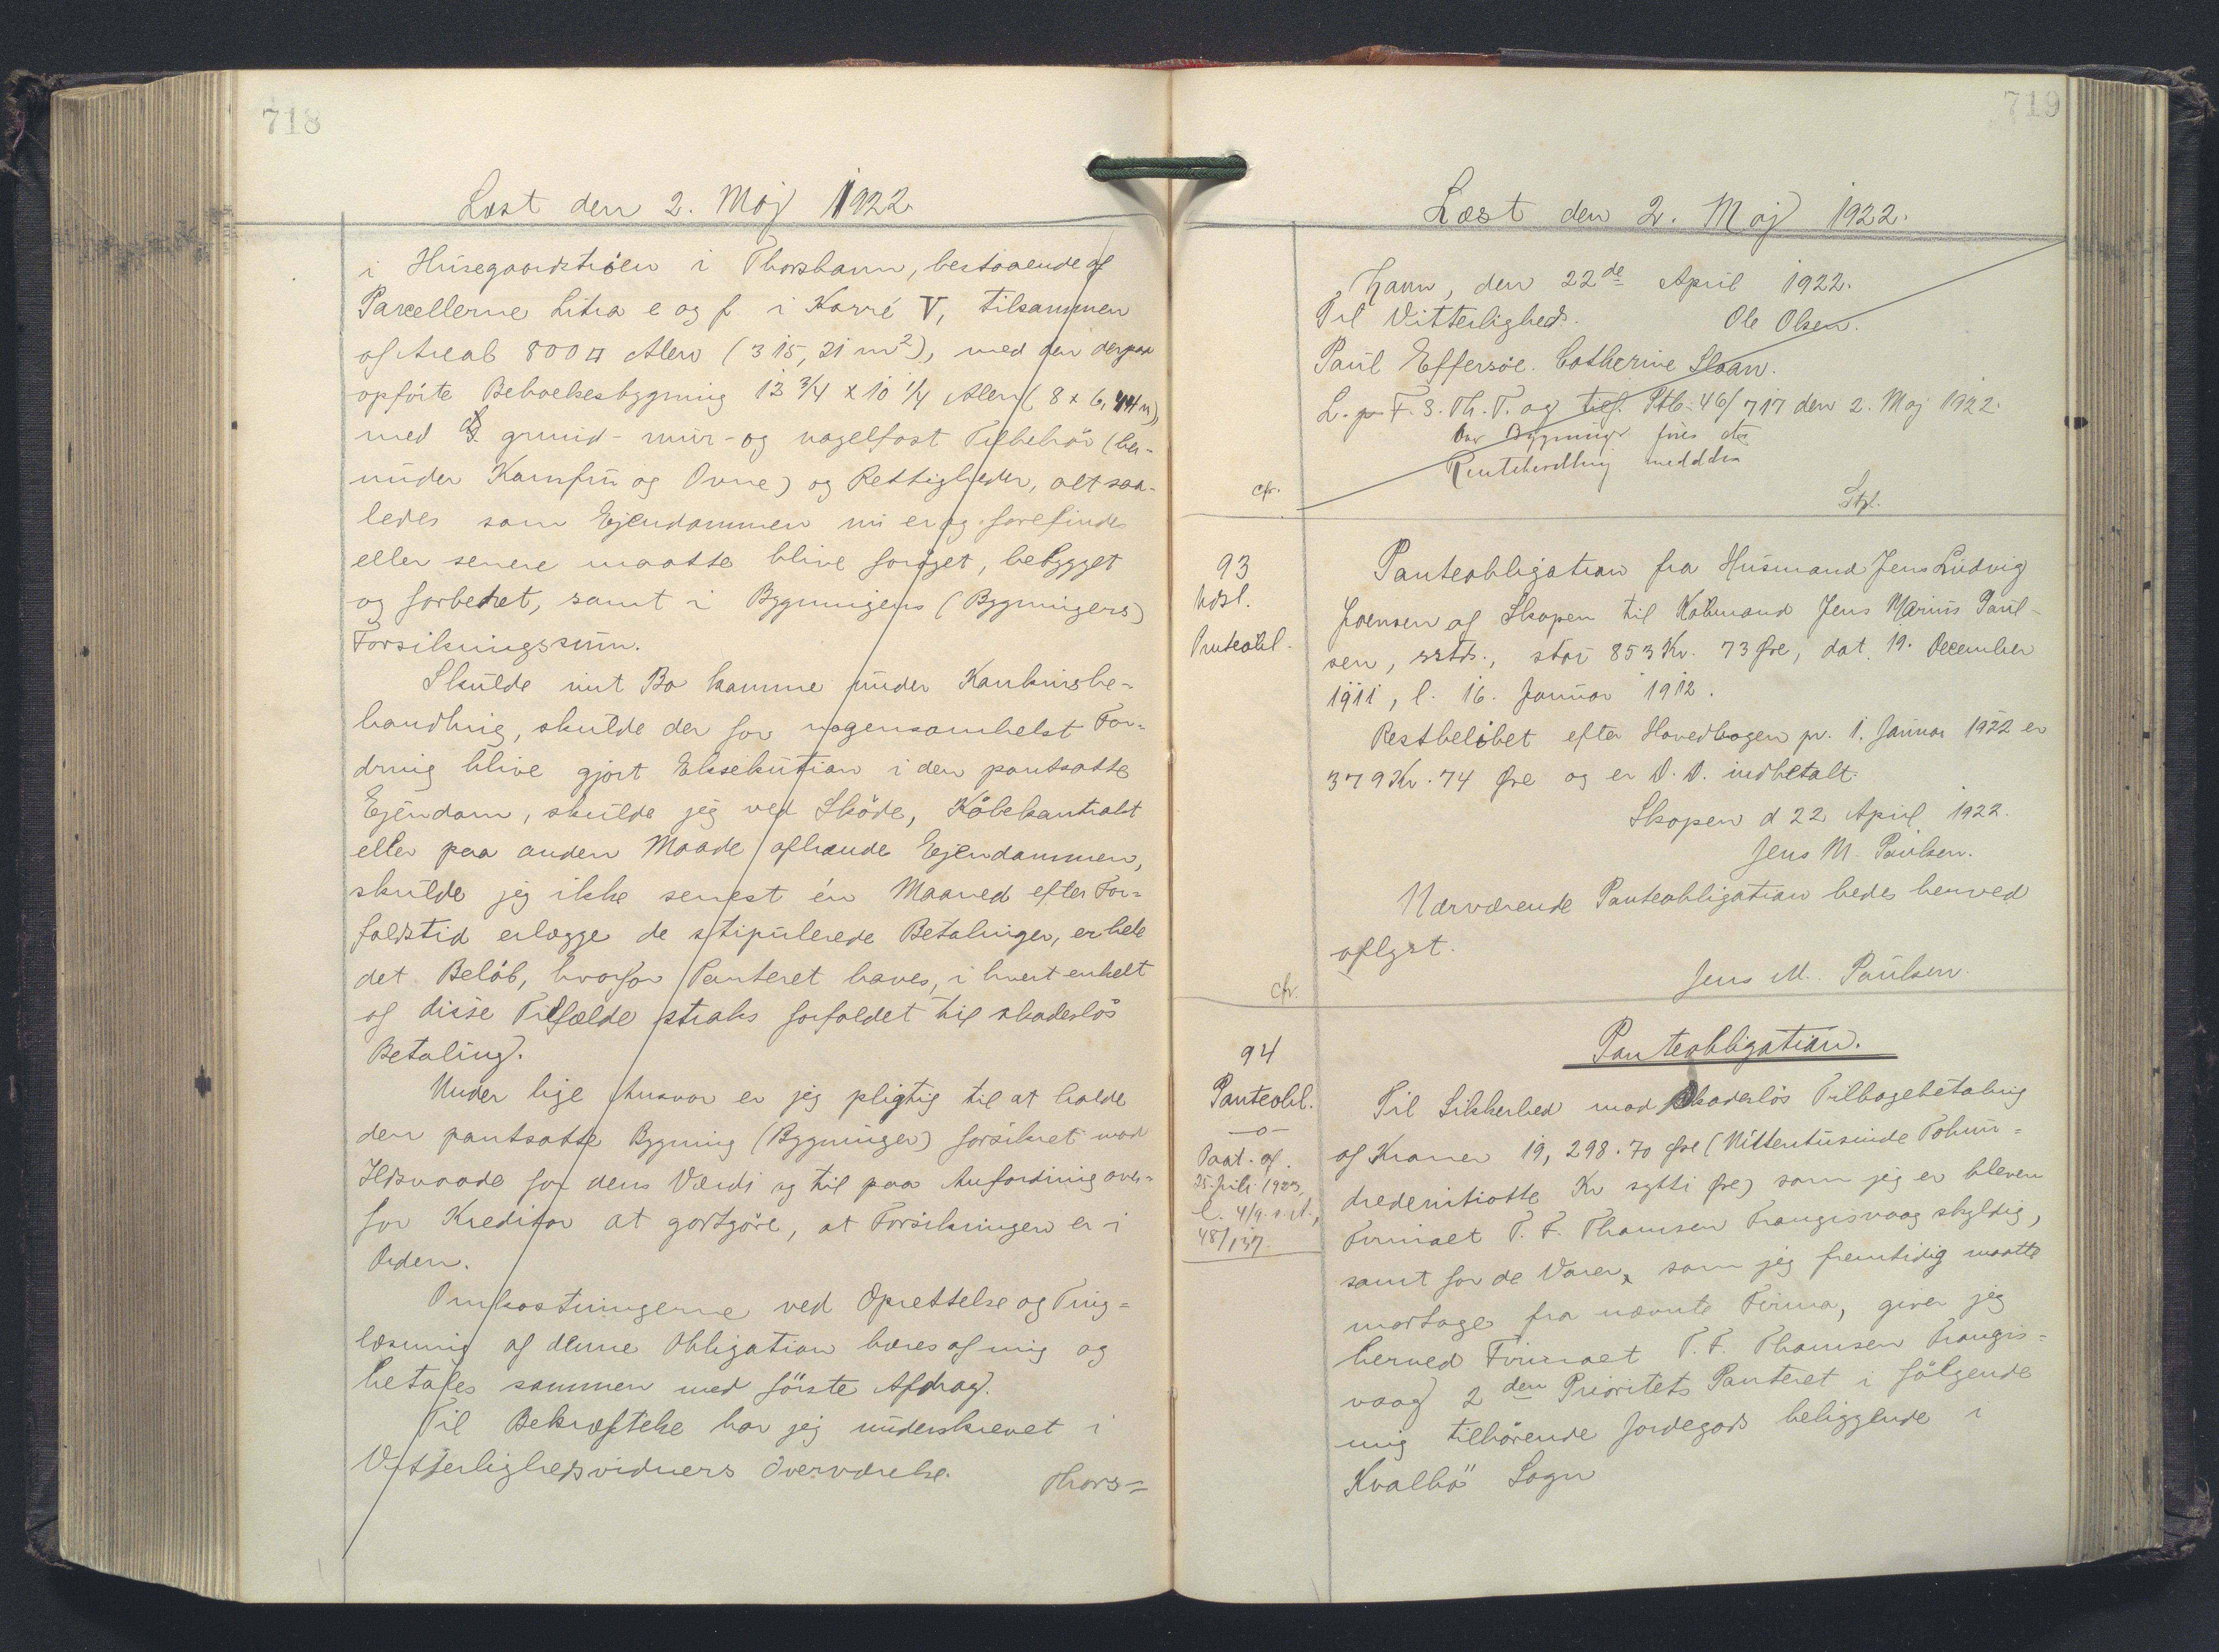 718
Læst den 2. Maj 1922.
i Húsegaardstrøen i Thorshavn, bestaaende af
Parcellerne Litra e og f i Karré V, tilsammen
af Areal 800 □ Alen (315,21 m²), med den derpaa
opførte Beboelsesbygning 12 3/4 x 10 1/4 Alen (8 x 6,44 m),
med grund- mur- og nagelfast Tilbehør (her-
under Komfur og Ovne) og Rettigheder, alt saa-
ledes som Ejendommen nu er og forefindes
eller senere maatte blive forøget, bebygget
og forbedret, samt i Bygningens (Bygningers)
Forsikringssum.
Skulde mit Bo komme under Konkursbe-
handling, skulde der for nogensomhelst For-
dring blive gjort Eksekution i den pantsatte
Ejendom, skulde jeg ved Skøde, Købekontrakt
eller paa anden Maade afhænde Ejendommen,
skulde jeg ikke senest én Maaned efter For-
faldstid erlægge de stipulerede Betalinger, er hele
det Beløb, hvorfor Panteret haves, i hvert enkelt
af disse Tilfælde straks forfaldet til skadesløs
Betaling.
Under lige Ansvar er jeg pligtig til at holde
den pantsatte Bygning (Bygninger) forsikret mod
Ildsvaade for dens Værdi og til paa Anfordring over-
for Kreditor at godtgøre, at Forsikringen er i
Orden.
Omkostningerne ved Oprettelse og Ting-
læsning af denne Obligation bæres af mig og
betales sammen med første Afdrag.
Til Bekræftelse har jeg underskrevet i
Vitterlighedsvidners Overværelse.
Thors-
719
Læst den 2. Maj 1922.
havn, den 22de April 1922.
Til Vitterlighed. Ole Olsen.
Paul Effersøe. Catherine Sloan.
L. p. F. S. Th. T. og Ptb. 46/717 den 2. Maj 1922.
cfr.
93
Udsl.
Panteobl.
Panteobligation fra Husmand Jens Ludvig
Joensen af Skopen til Købmand Jens Marius Paul-
sen, sstds., stor 853 Kr. 73 Øre, dat. 19. December
1911, l. 16. Januar 1912.
Restbeløbet efter Hovedbogen pr. 1. Januar 1922 er
379 Kr. 74 Øre og er D. D. indbetalt.
Skopen d 22 April 1922.
Jens M. Paulsen.
Nærværende Panteobligation bedes herved
aflyst.
Jens M. Paulsen.
cfr.
94
Panteobl.
—o—
Paat. af
25. Juli 1923,
l. 4/9. s. A.,
48/137.
Panteobligation.
Til Sikkerhed mod skadesløs Tilbagebetaling
af Kroner 19,298.70 Øre (Nittentusinde Tohun-
dredenitiotte Kr sytti Øre) som jeg er bleven
Firmaet T. F. Thomsen Trangisvaag skyldig,
samt for de Varer, som jeg fremtidig maatte
modtage fra nævnte Firma, giver jeg
herved Firmaet T. F. Thomsen Trangis-
vaag 2den Prioritets Panteret i følgende
mig tilhørende Jordegods beliggende i
Kvalbö Sogn